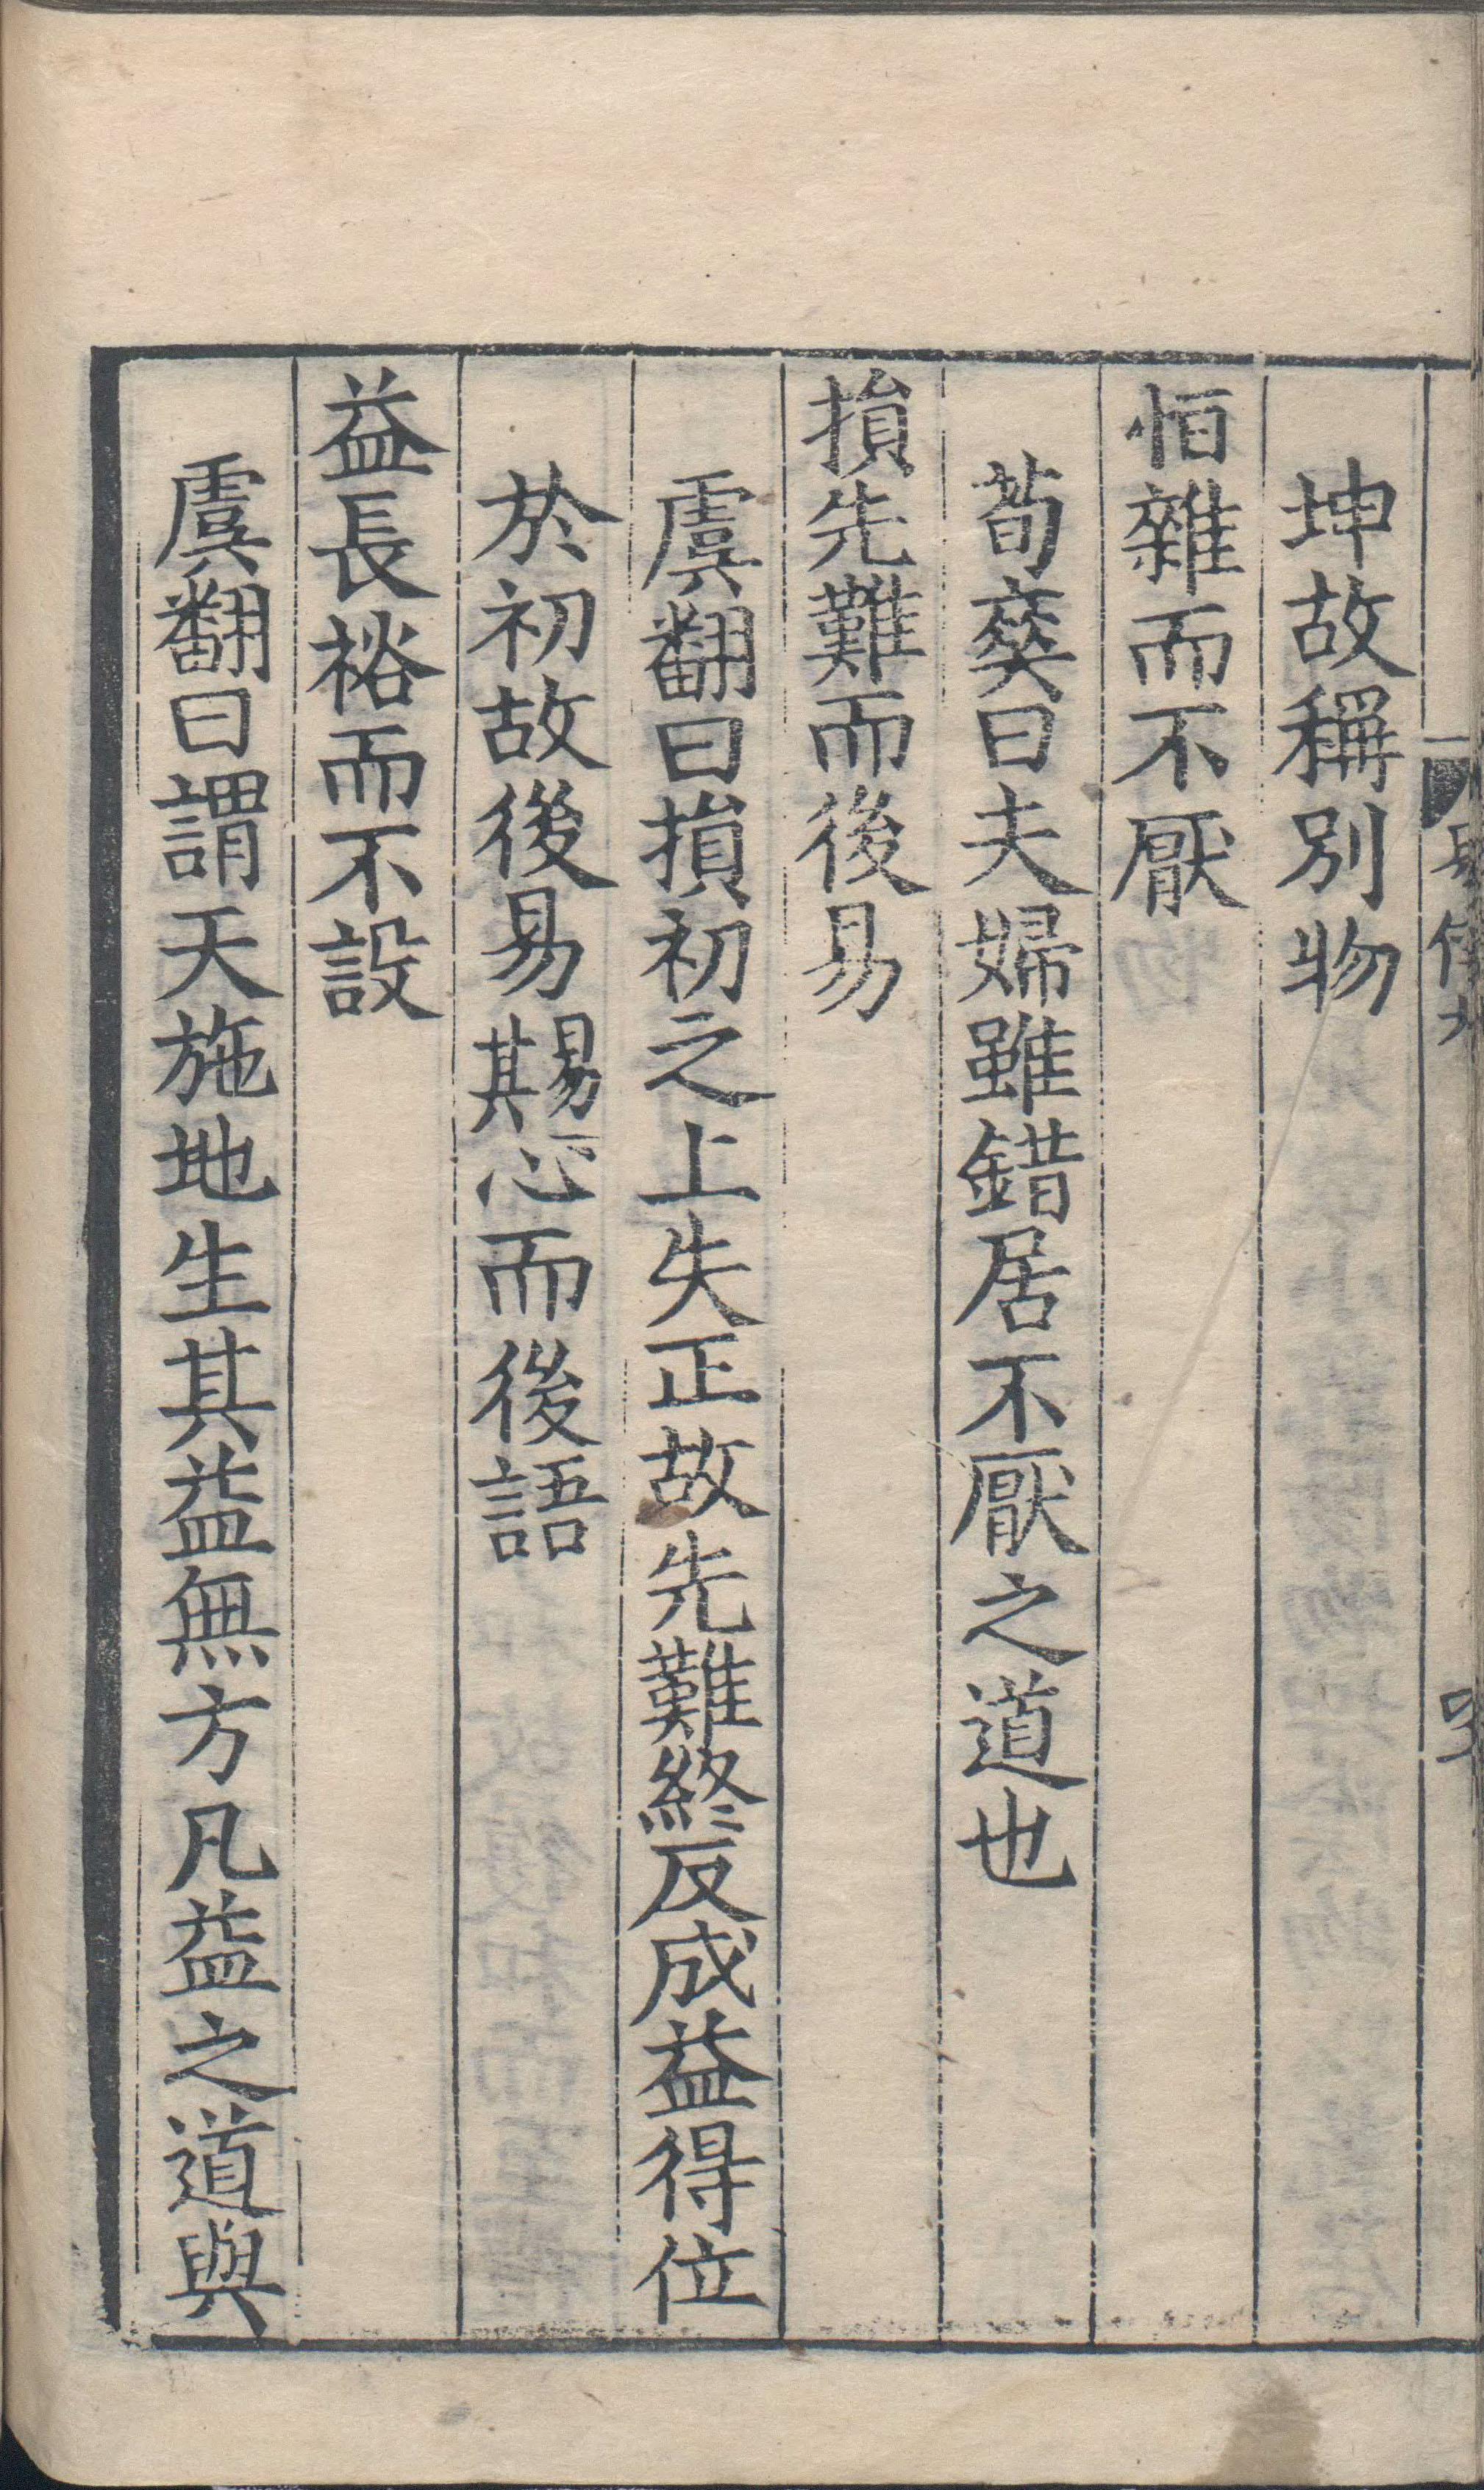 坤故稱別物
恒雜而不厭
荀爽曰夫婦雖錯居不厭之道也
損先難而後易
虞翻曰損初之上失正故先難終反成益得位
於初故後易易其心而後語
益長裕而不設
虞翻曰謂天施地生其益無方凡益之道與